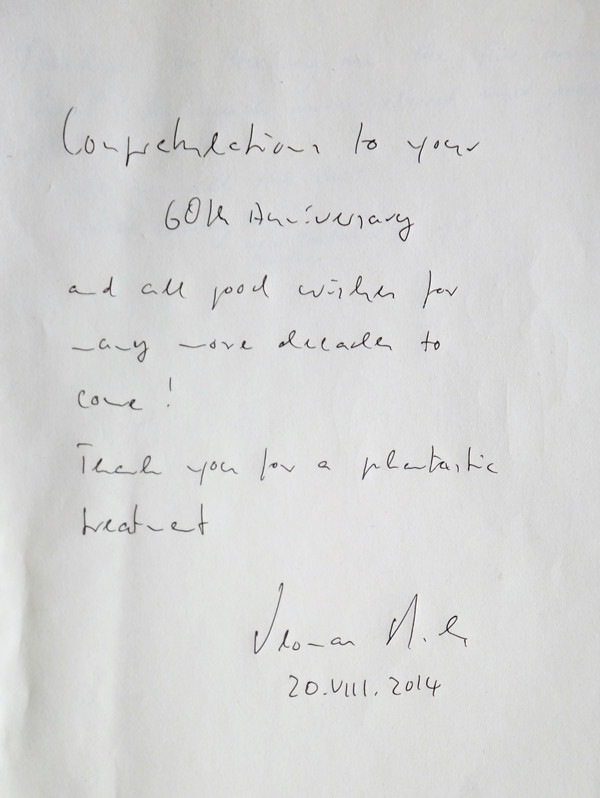 Congratulations to your
60th Anniversary
and all good wishes for
many more decades to
come!
Thank you for a phantastic
treatment
20.VIII.2014